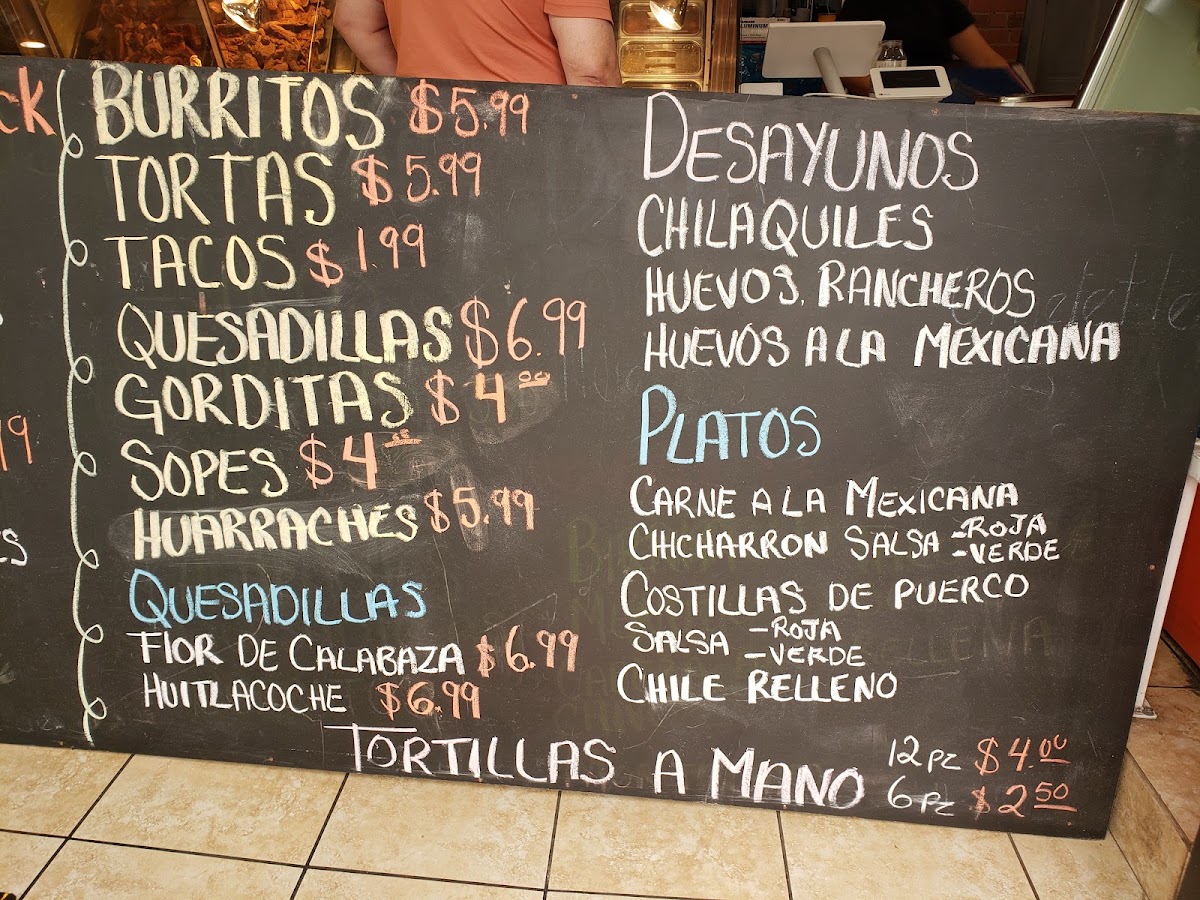 ck
BURRITOS $5.99
TORTAS $5.99
TACOS $1.99
QUESADILLAS $6.99
GORDITAS $4.00
SOPES $4
HUARRACHES $5.99
QUESADILLAS
FLOR DE CALABAZA $6.99
HUITLACOCHE $6.99
DESAYUNOS
CHILAQUILES
HUEVOS. RANCHEROS
HUEVOS A LA MEXICANA
PLATOS
CARNE A LA MEXICANA
CHICHARRON SALSA -ROJA
-VERDE
COSTILLAS DE PUERCO
SALSA -ROJA
-VERDE
CHILE RELLENO
TORTILLAS A MANO 12pz $4.00
6pz $2.50